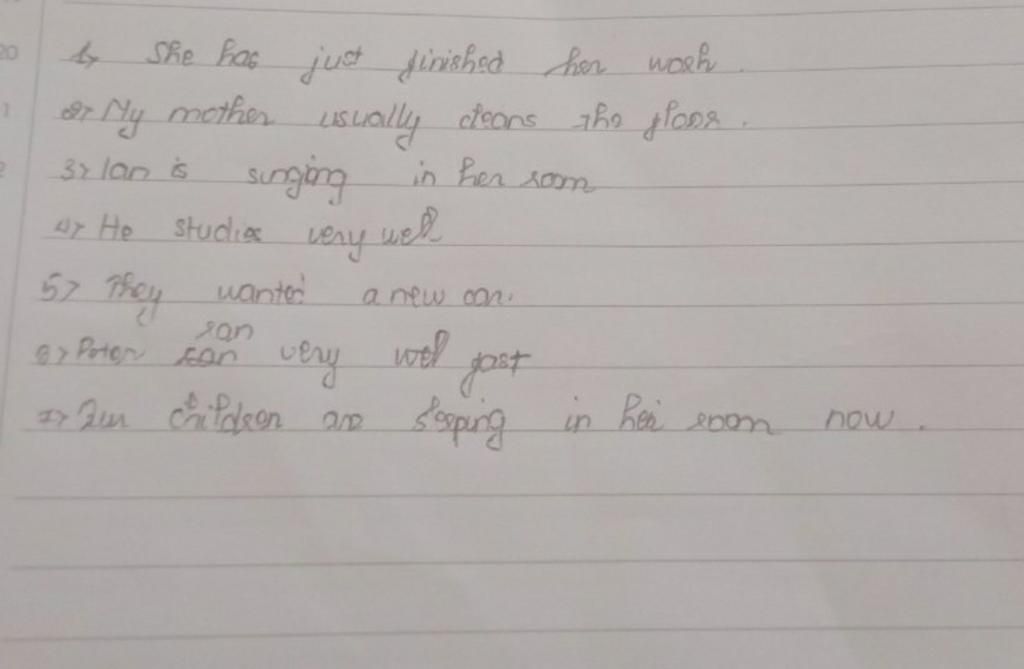 20 1> She has just finished her work.
1 2> My mother usually cleans the floor.
2 3> Ian is singing in her room
4> He studies very well
5> They wanted a new car.
ran
6> Peter ran very well fast
7> children are sleeping in her room now.